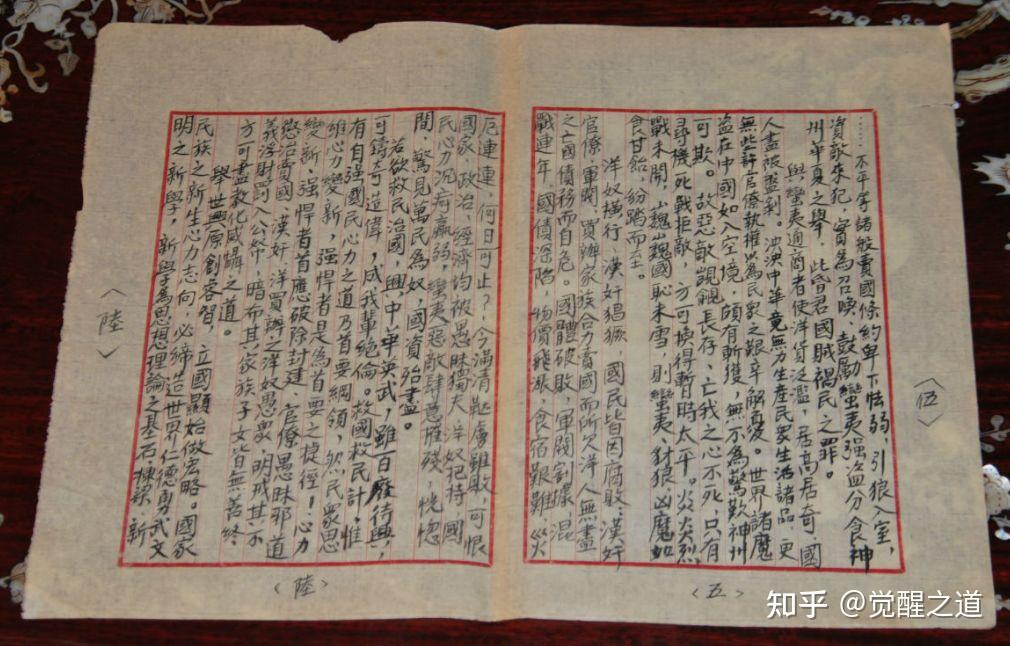 ……不平等諸般賣國條約卑下怯弱，引狼入室，
資敵來犯，實為召喚、鼓勵蠻夷强盜分食神
州華夏之舉，此皆君國賊禍民之罪。
與蠻夷通商者使洋貨泛濫，居高居奇，國
人盡被盤剝。泱泱中華竟無力生產民衆生活諸品，更
無些許官僚執權以為民衆之艱辛解憂。世界諸魔
盜在中國如入空境，頗有斬獲，無不為驚歎神州
可欺。故惡敵覬覦長存，亡我之心不死，只有
尋機死戰拒敵，方可換得暫時太平。炎炎烈
戰未開，巍巍國恥未雪，則蠻夷、豺狼凶魔如
食甘飴，紛踏而至。
洋奴橫行，漢奸猖獗，國民皆因腐敗、漢奸
官僚，軍閥，買辦家族合力賣國而所欠洋人無盡
之亡國債務而自危。國體破敗，軍閥割據，混
戰連年，國債深陷，物價飛漲，食宿艱難，災
〈伍〉
〈五〉
厄連連，何日可止？今滿清韃虜雖敗，可恨
國家、政治、經濟均被愚昧獨夫、洋奴把持，國
民心力沉疴羸弱，蠻夷惡敵肆意雁殘，恍惚
間，驚見萬民為奴，國資殆盡。
若欲救民治國，興中華英武，雖百廢待興，
可鑄奇道偉，咸我輩絕倫。救國救民計，惟
有自强國民心力之道乃首要綱領，然民衆思
維心力變新，强悍者是為首要之捷徑！心力
變新，强悍者首應破除封建、官僚愚昧邪道
懲治賣國、漢奸、洋買辦之洋奴愚衆，明戒其不
義浮財罰入公帑，暗布其家族子女皆無善終
方可盡教化威懾之道。
舉世興原創睿智，立國顯始做宏略。國家
民族之新生心力志向，必締造世界仁德勇武文
明之新學，新學為思想理論之基石棟梁，新
〈陸〉
〈陸〉
知乎 @觉醒之道